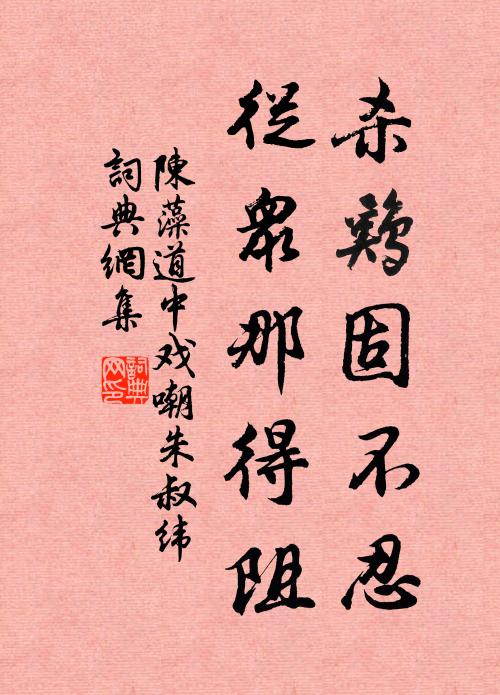 杀鷄固不忍
從眾那得阻
陳藻道中戏嘲朱叔纬
詞典網集
詞典網印